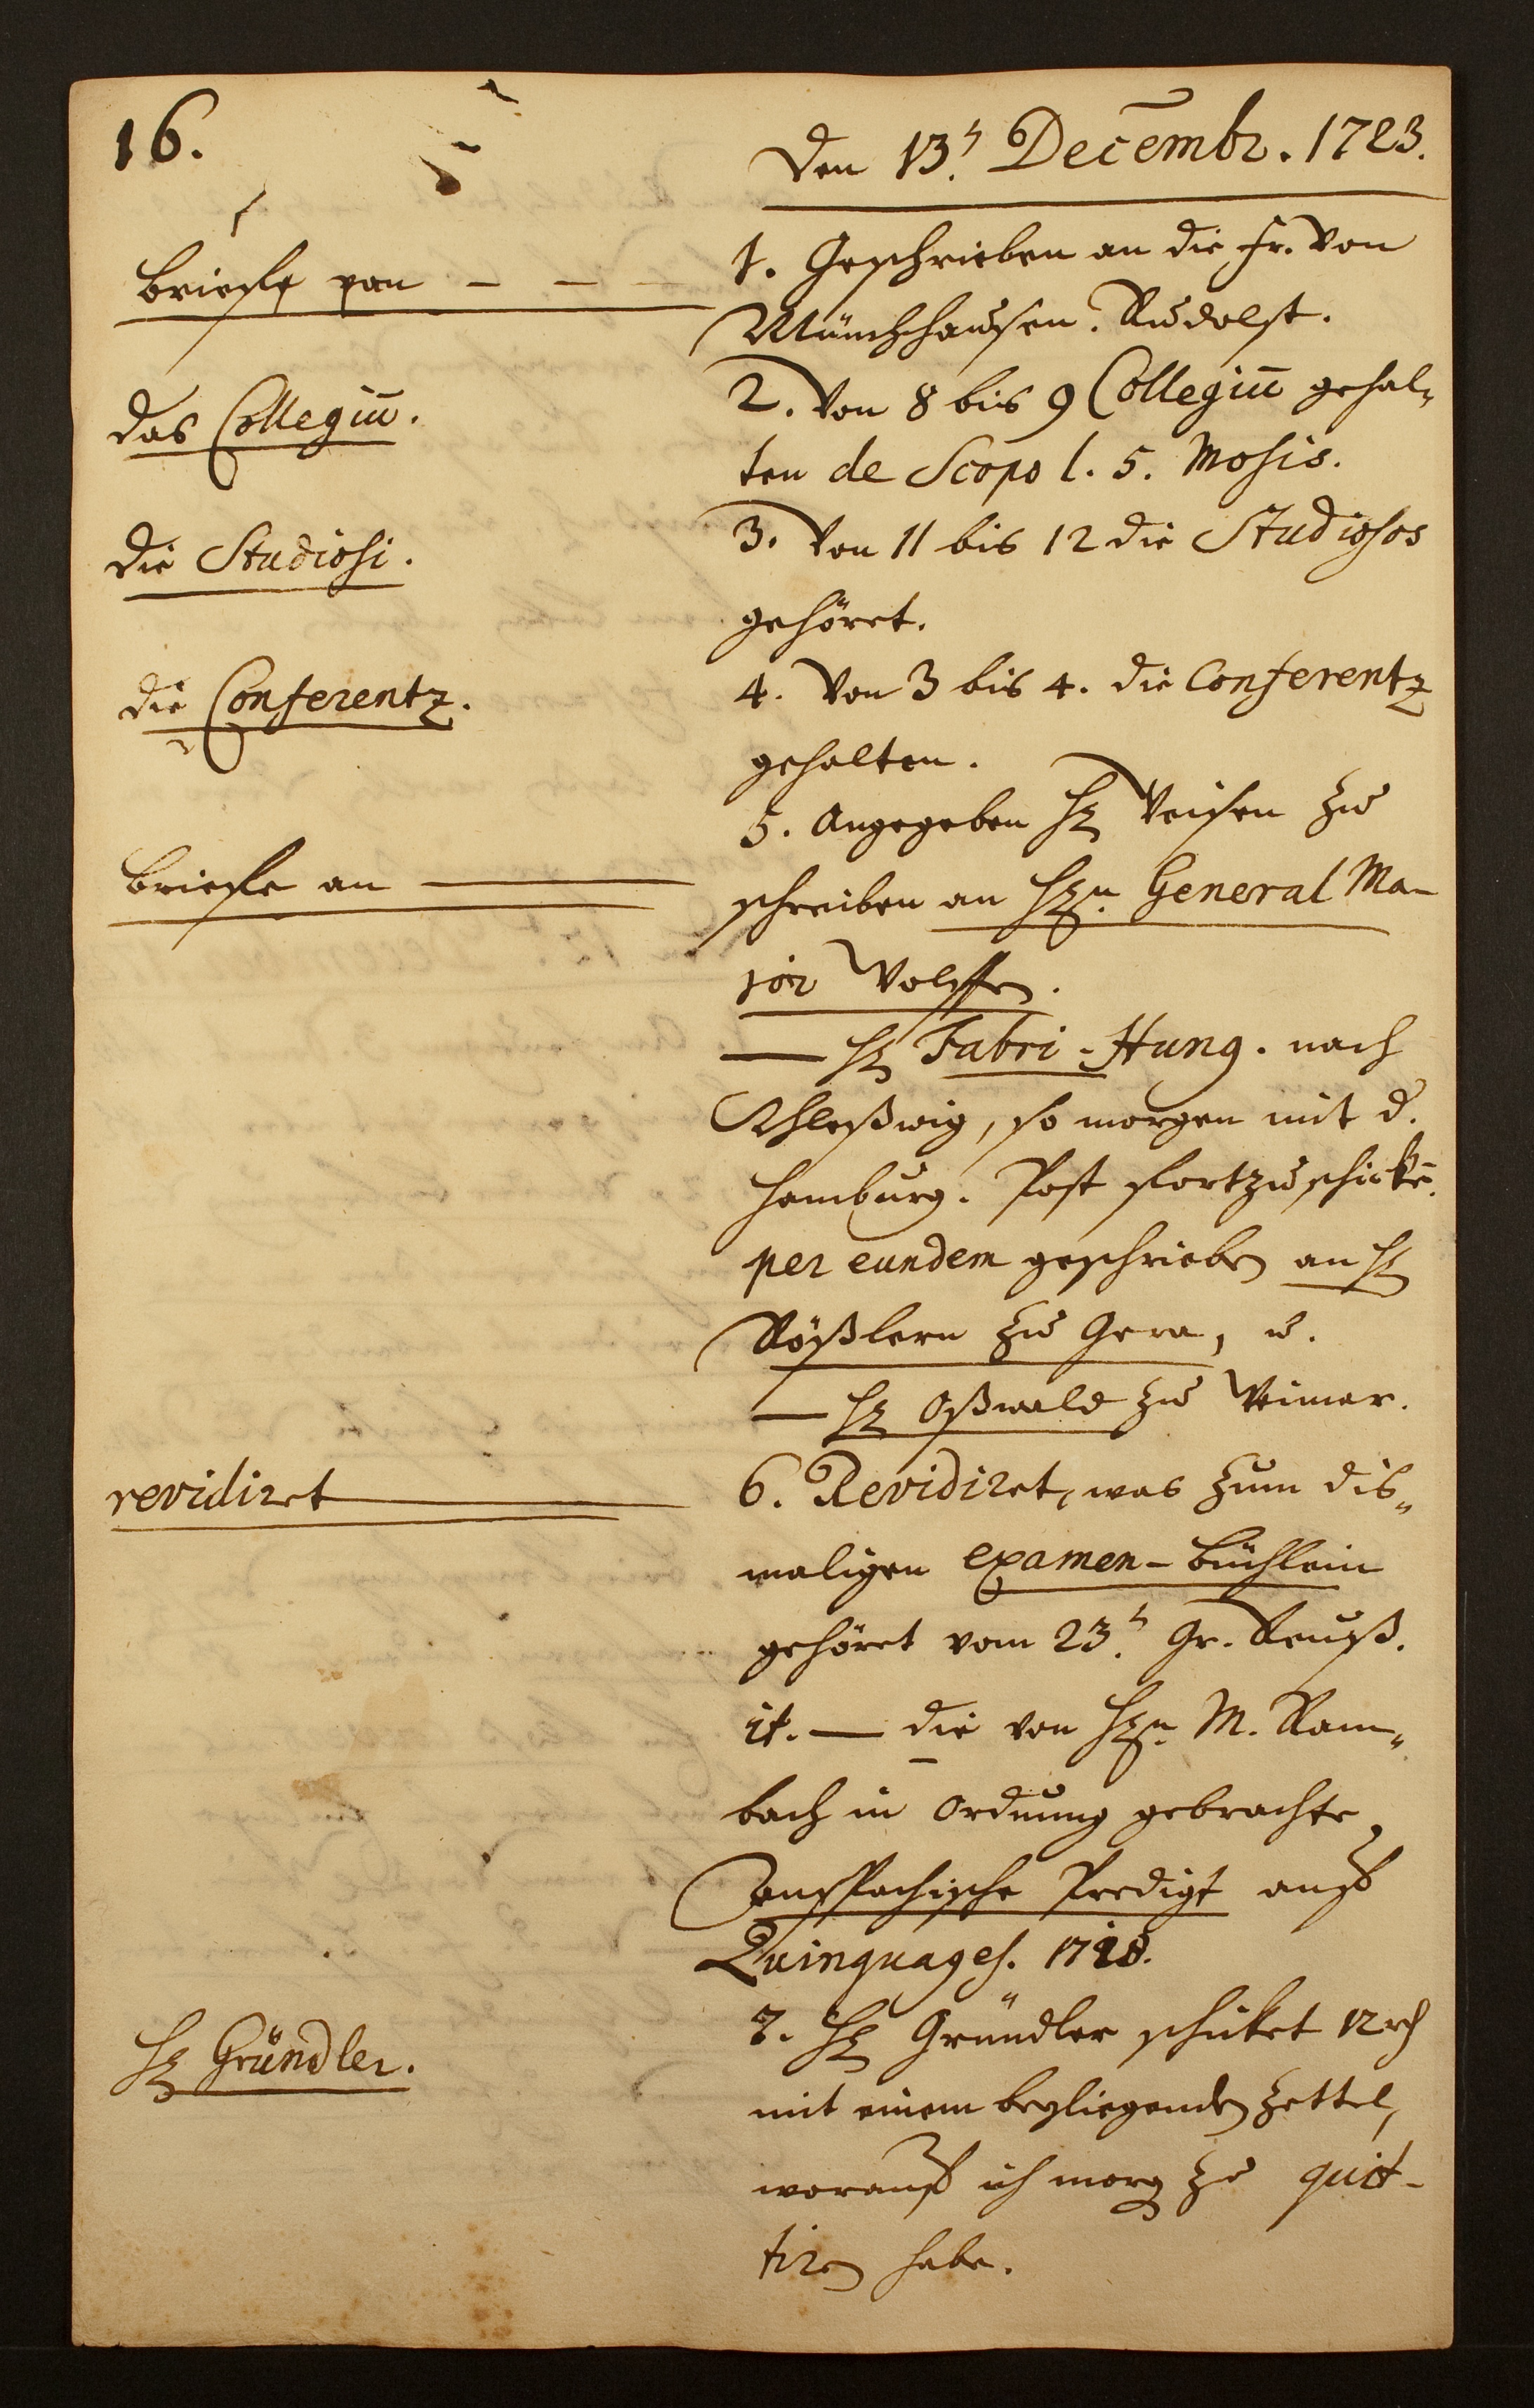 16.
Den 13ⁿ. Decembr. 1723.
Brieffe an - - -
1. Geschrieben an die Fr. von
Münchhausen. Rudolst.
das Collegiū.
2. Von 8 bis 9 Collegiū gehal„
ten de Scopo l. 5. Mosis.
die Studiosi.
3. Von 11 bis 12 die Studiosos
gehöret.
die Conferentz.
4. Von 3 bis 4. die Conferentz
gehalten.
5. Angegeben H. Veisen zu
Brieffe an
schreiben an Hrn. General Ma-
jor Wolffen.
— H. Fabri-Hung. nach
Schleßwig, so morgen mit d.
Hamburg. Post fortzuschickē.
per eundem geschrieben an H.
Rößlern zu Gera, u.
— H. Oßwald zu Weimar.
revidiret
6. Revidiret, was zum dis„
maligen Examen-Büchlein
gehöret vom 23ⁿ. Gr. Reuß.
it. — die von Hrn. M. Ram„
bach in Ordnung gebrachte
Predigt auf
Quinquages. 1718.
H. Gründler.
7. H. Gründler schicket 12 rh
mit einem beyliegenden Zettel,
worauf ich morg. zu quit-
tiren habe.